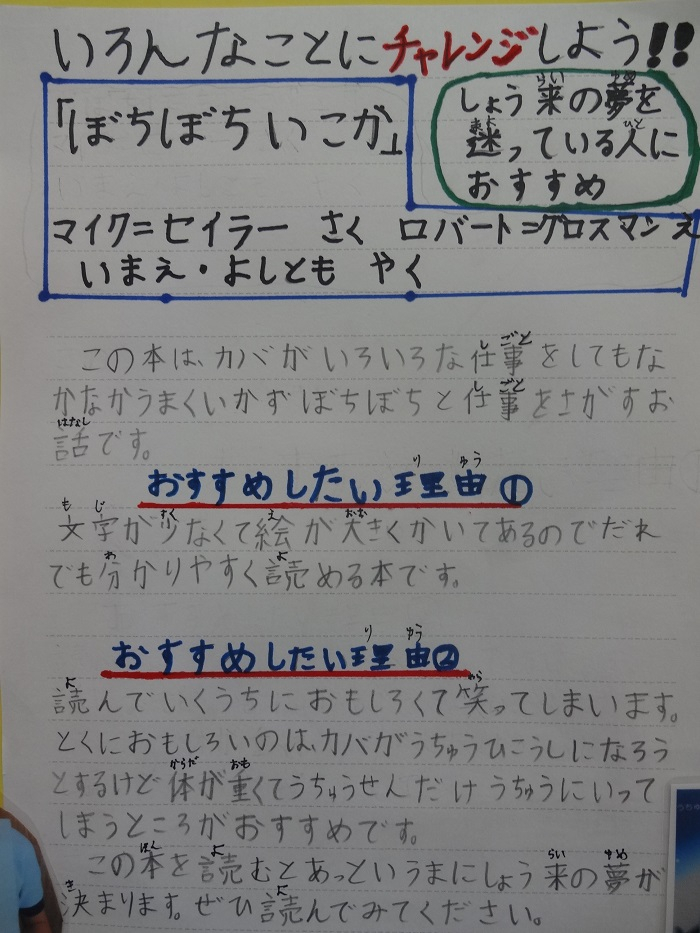 いろんなことにチャレンジしよう!!
しょう来の夢を
迷っている人に
おすすめ
「ぼちぼちいこか」
マイク=セイラー さく ロバート=グロスマン え
いまえ・よしとも やく
この本は、カバがいろいろな仕事をしてもな
かなかうまくいかずぼちぼちと仕事をさがすお
話です。
おすすめしたい理由①
文字が少なくて絵が大きくかいてあるのでだれ
でも分かりやすく読める本です。
おすすめしたい理由②
読んでいくうちにおもしろくて笑ってしまいます。
とくにおもしろいのは、カバがうちゅうひこうしになろう
とするけど体が重くてうちゅうせんだけうちゅうにいって
しまうところがおすすめです。
この本を読むとあっというまにしょう来の夢が
決まります。ぜひ読んでみてください。